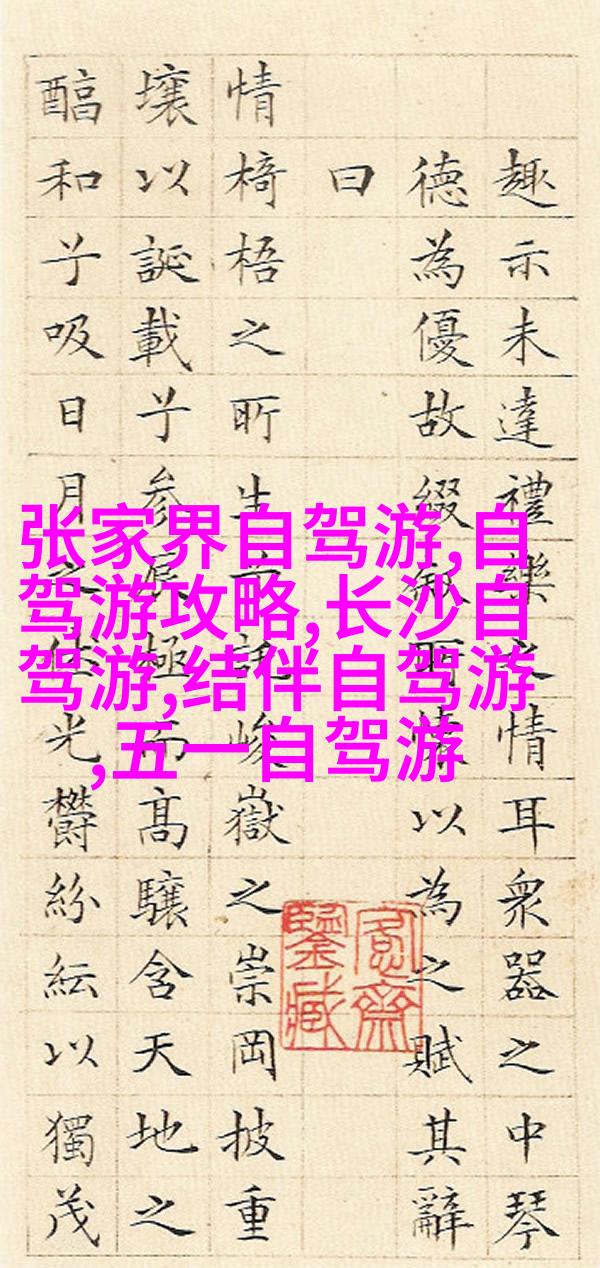 趣示未達禮樂之情耳衆器之中琴
德為優故綴叙所懷以為之賦其辭
曰
情椅梧之所生兮託峻嶽之崇岡披重
壤以誕載兮参辰極而高驤含天地之
醕和兮吸日月之休光鬱紛紜以獨茂
愙齋
鑒藏
张家界自驾游,自
驾游攻略,长沙自
驾游,结伴自驾游
,五一自驾游